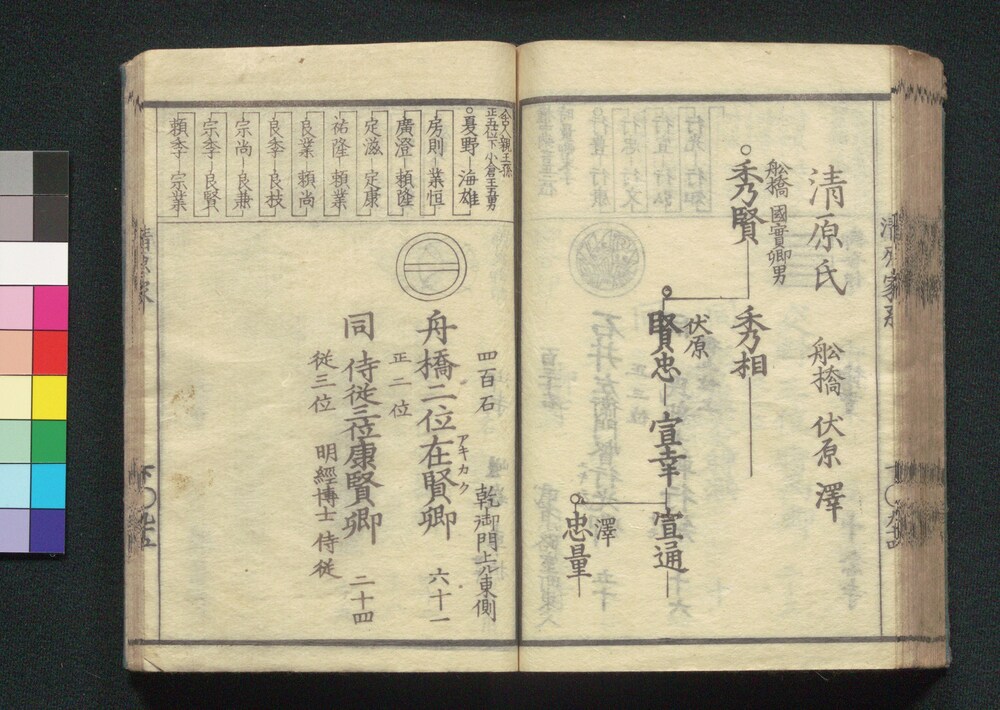 清原氏 舩橋 伏原 澤
舩橋 國賢卿男
秀賢
秀相
伏原
賢忠 宣幸 宣通
澤
忠量
舎人親王孫
正五位下 小倉王五男
夏野 海雄
房則 業恒
廣澄 頼隆
定滋 定康
祐隆 頼業
良業 頼尚
良季 良枝
宗尚 良兼
宗季 良賢
頼季 宗業
四百石 乾御門上ル東側
舟橋二位在賢卿 六十一
アキカタ
正二位
同 侍従三位康賢卿 二十四
従三位 明經博士 侍従